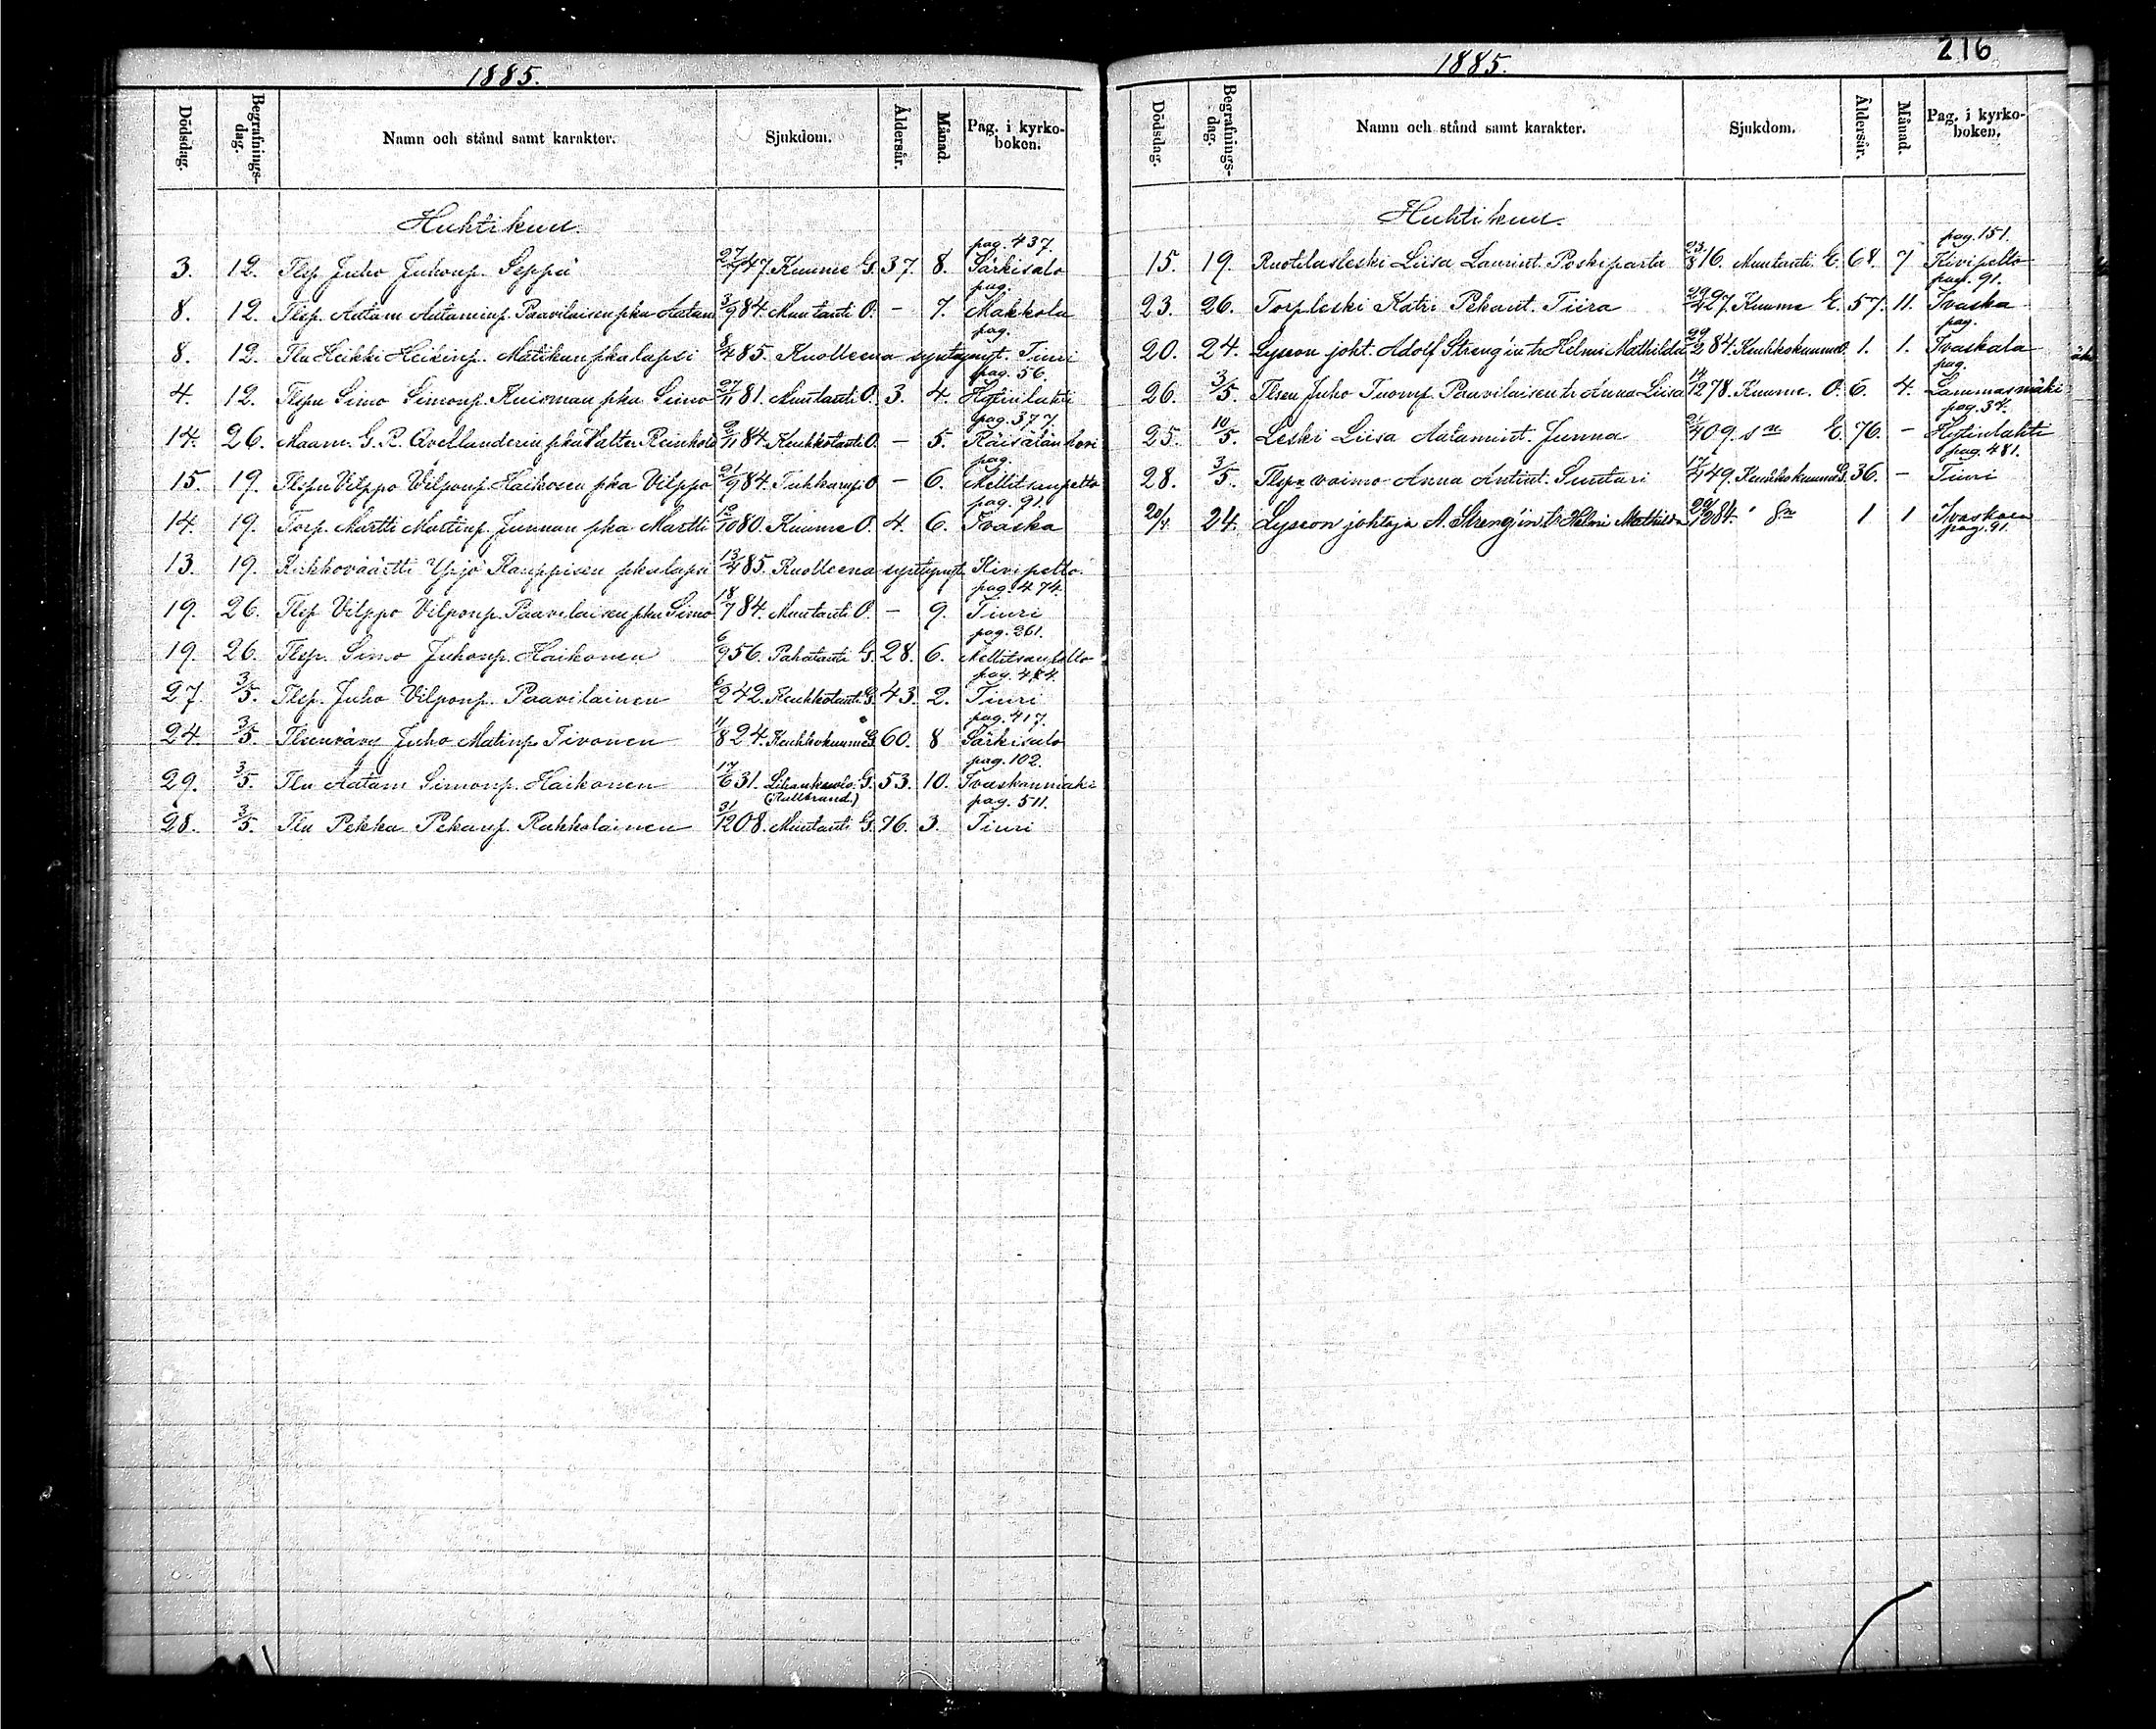 1885.
Dödsdag. Begrafnings-dag. Namn och stånd samt karakter. Sjukdom. Åldersår. Månad. Pag. i kyrko-boken.
Huhtikuu.
pag. 437.
3. 12. Tlsp. Juho Juhonp. Seppä 27/7 47. Kuume G. 37. 8. Särkisalo
pag.
8. 12. Tlsp. Aatam Aataminp. Paavilaisen pka Aatam 3/9 84. Muutauti O. – 7. Makkola
pag.
8. 12. Tln Heikki Heikinp. Matikan pka lapsi 8/4 85. Kuolleena syntynyt. Tiuri
pag. 56.
4. 12. Tlspn Simo Simonp. Kuisman pka Simo 27/11 81. Muutauti O. 3. 4. Hytinlahti
pag. 377.
14. 26. Maam. G. R. Avellanderin pka Walter Reinhold 2/11 84. Keuhkotauti O. – 5. Räisälän hovi
pag.
15. 19. Tlspn Vilppo Wilponp. Haikosen pka Vilppo 21/9 84. Tuhkarup. O – 6. Mellitsanpelto
pag. 91.
14. 19. Torp. Martti Martinp. Junnan pka Martti 12/10 80. Kuume O. 4. 6. Ivaska
13. 19. Kirkkoväärtti Yrjö Kauppisen pka lapsi 13/4 85. Kuolleena syntynyt. Kivipelto.
pag. 474.
19. 26. Tlsp. Vilppo Vilponp. Paavilaisen pka Simo 18/7 84. Muutauti O. – 9. Tiuri
pag. 261.
19. 26. Tlsp. Simo Juhonp. Haikonen 6/9 56. Pahatauti G. 28. 6. Mellitsanpelto
pag. 484.
27. 3/5. Tlsp. Juho Vilponp. Paavilainen 6/2 42. Keuhkotauti G. 43. 2. Tiuri
pag. 417.
24. 3/5. Tlsenvävy Juho Matinp. Tivonen 11/8 24. Keuhkokuume G. 60. 8 Särkisalo
pag. 102.
29. 3/5. Tln Aatam Simonp. Haikonen 17/6 31. G. 53. 10. Ivaskanmäki
(Kallbrand.) pag. 511.
28. 3/5. Tln Pekka Pekanp. Rahkolainen 31/12 08. Muutauti G. 76. 3. Tiuri
1885.
216
Dödsdag. Begrafnings-dag. Namn och stånd samt karakter. Sjukdom. Åldersår. Månad. Pag. i kyrko-boken.
Huhtikuu.
pag. 151.
15. 19. Ruotilasleski Liisa Laurint. Poskiparta 23/8 16. Muutauti. E. 68. 7 Kivipelto
pag. 91.
23. 26. Torp.leski Katri Pekant. Tiira 29/4 27. Kuume E. 57. 11. Ivaska
pag.
20. 24. Lyseon joht. Adolf Streng'in tr Helmi Mathilda 29/2 84. Keuhkokuume O. 1. 1. Ivaskala
pag.
26. 3/5. Tlsen Juho Tuomp. Paavilaisen tr Anna Liisa 14/12 78. Kuume. O. 6. 4. Lammasmäki
pag. 34.
25. 10/5. Leski Liisa Aatamint. Junna 21/4 09. sn E. 76. – Hytinlahti
pag. 481.
28. 3/5. Tlspn vaimo Anna Antint. Suutari 17/4 49. Keuhkokuume G. 36. – Tiuri
20/4. 24. Lyseon johtaja A. Streng'in tr Helmi Mathilda 84. Sn 1 1 Ivaskan
pag. 91.